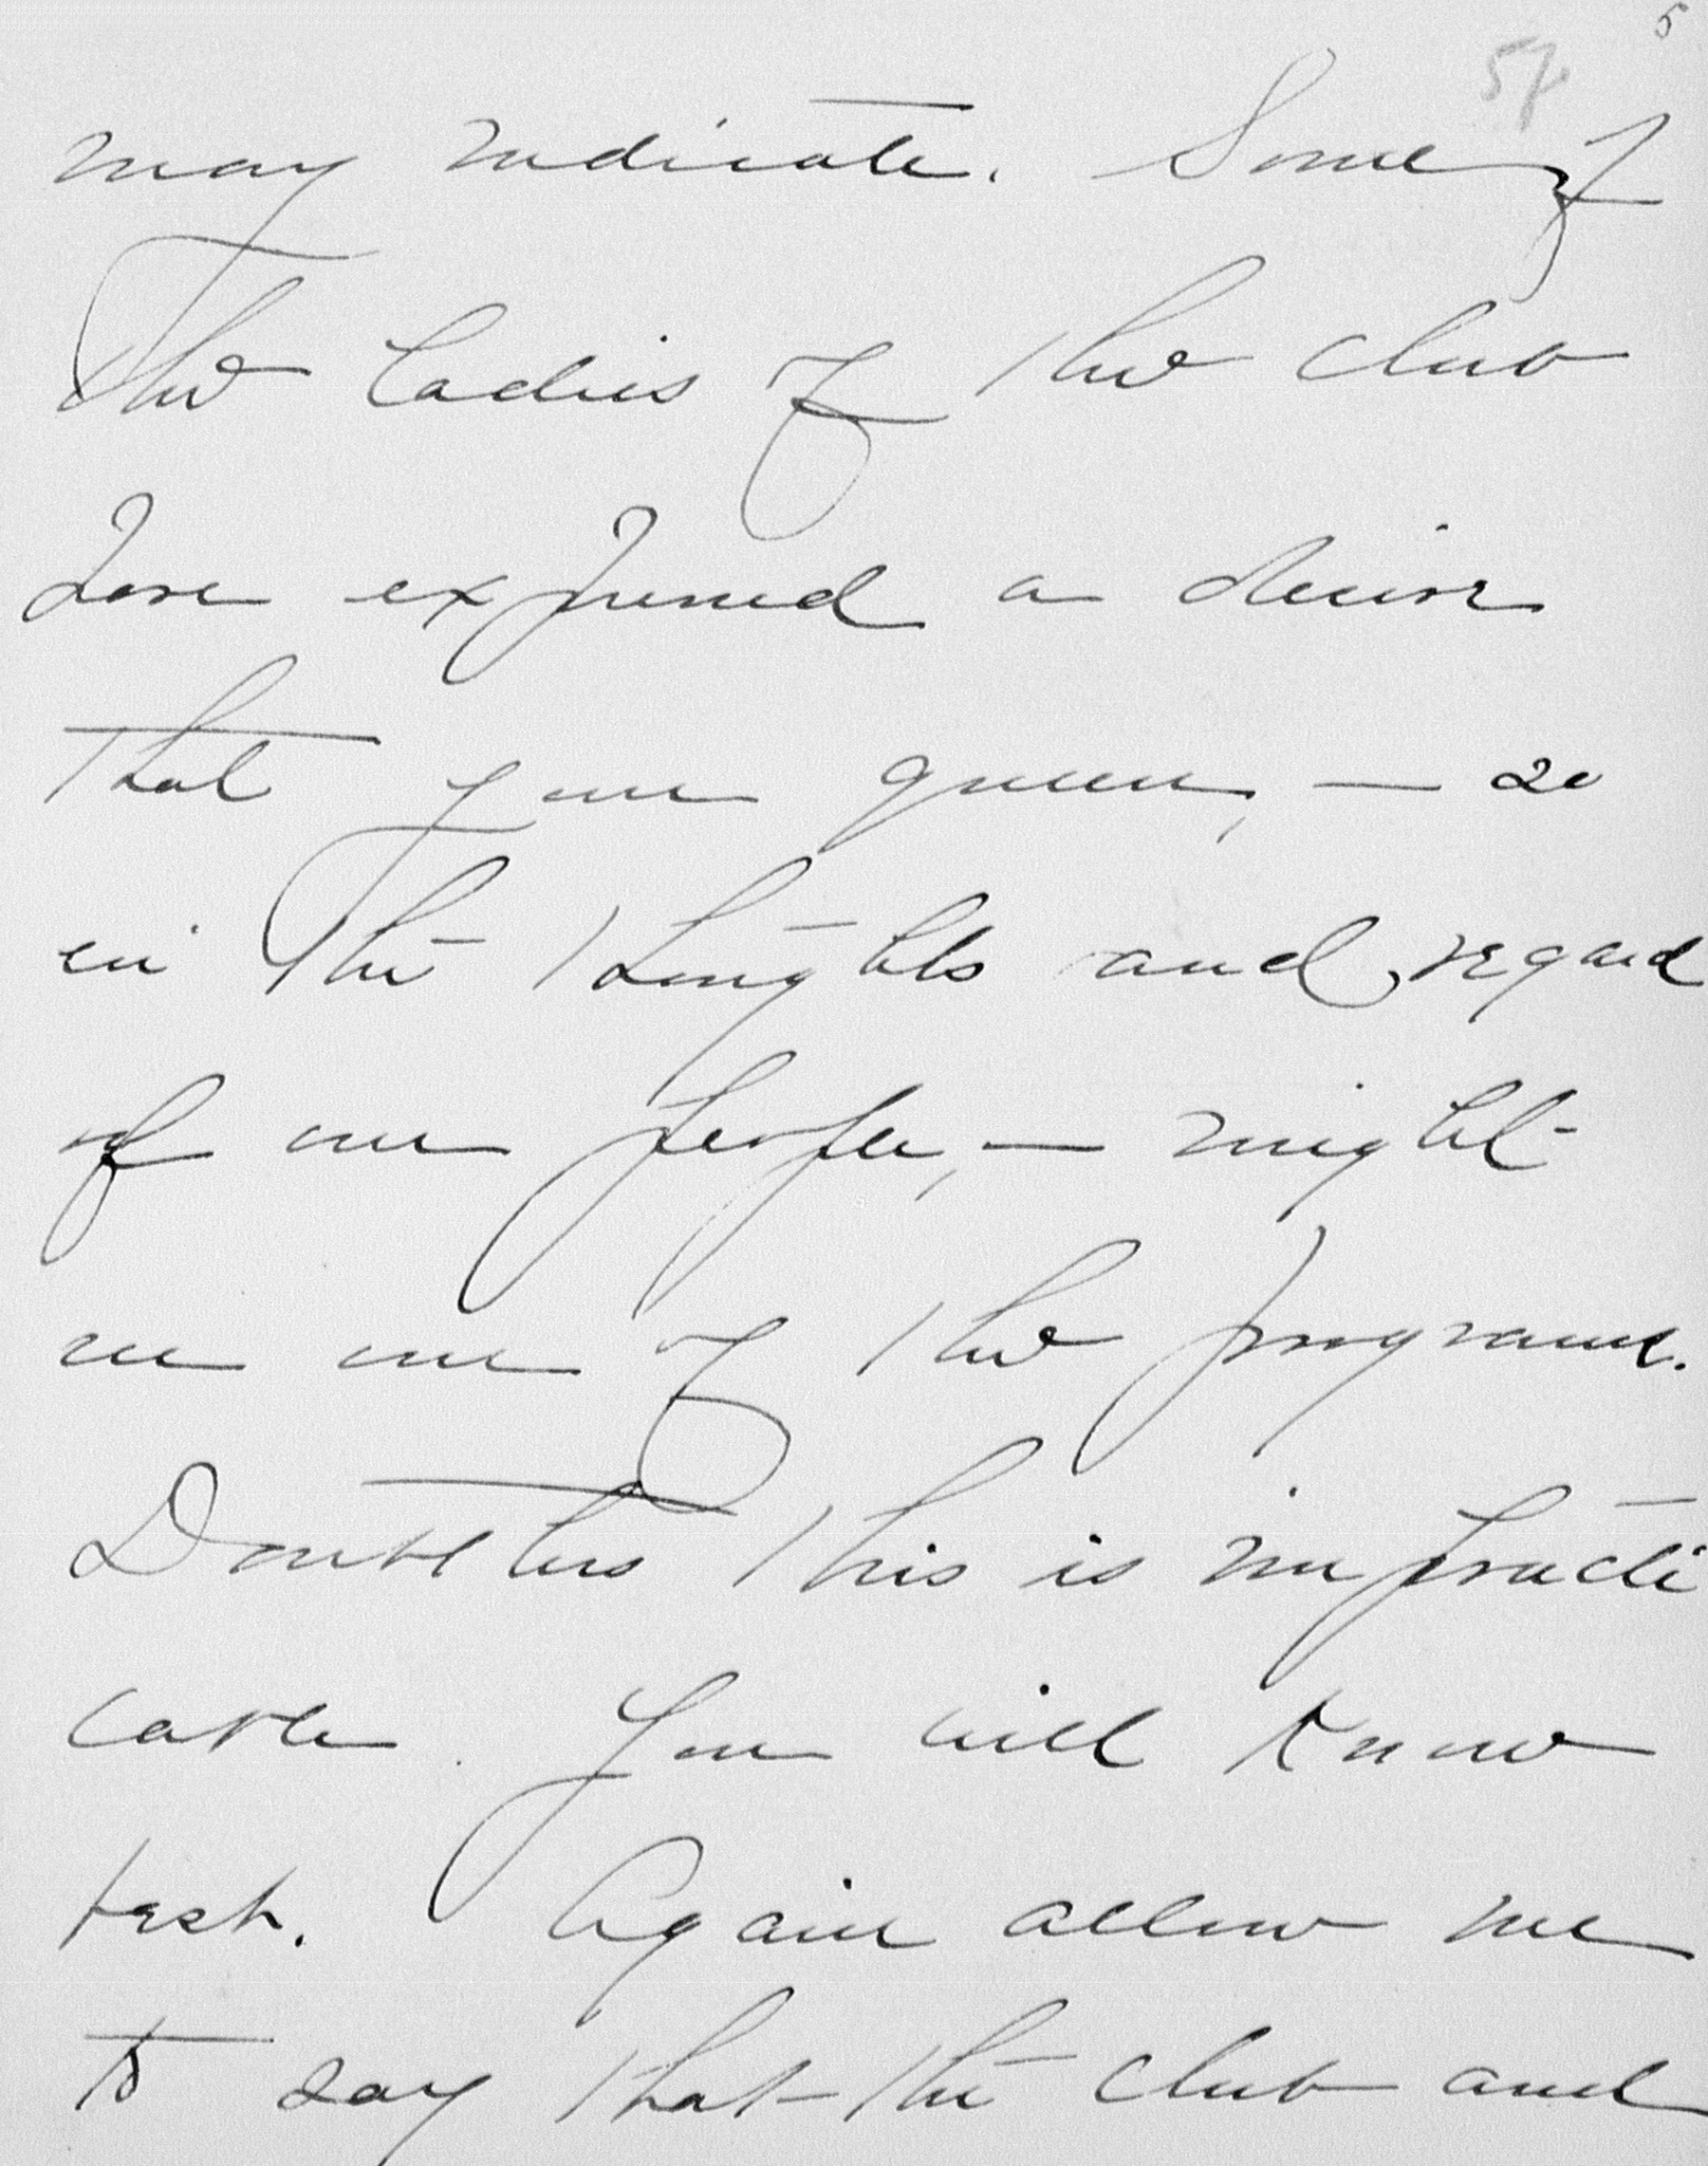 5
57
may indicate. Some of
the ladies of the club
have expressed a desire
that your queen, — so
in the thoughts and regard
of our people, — might
be one of the program.
Doubtless this is impracti
cable. You will know
best. Again allow me
to say that the club and